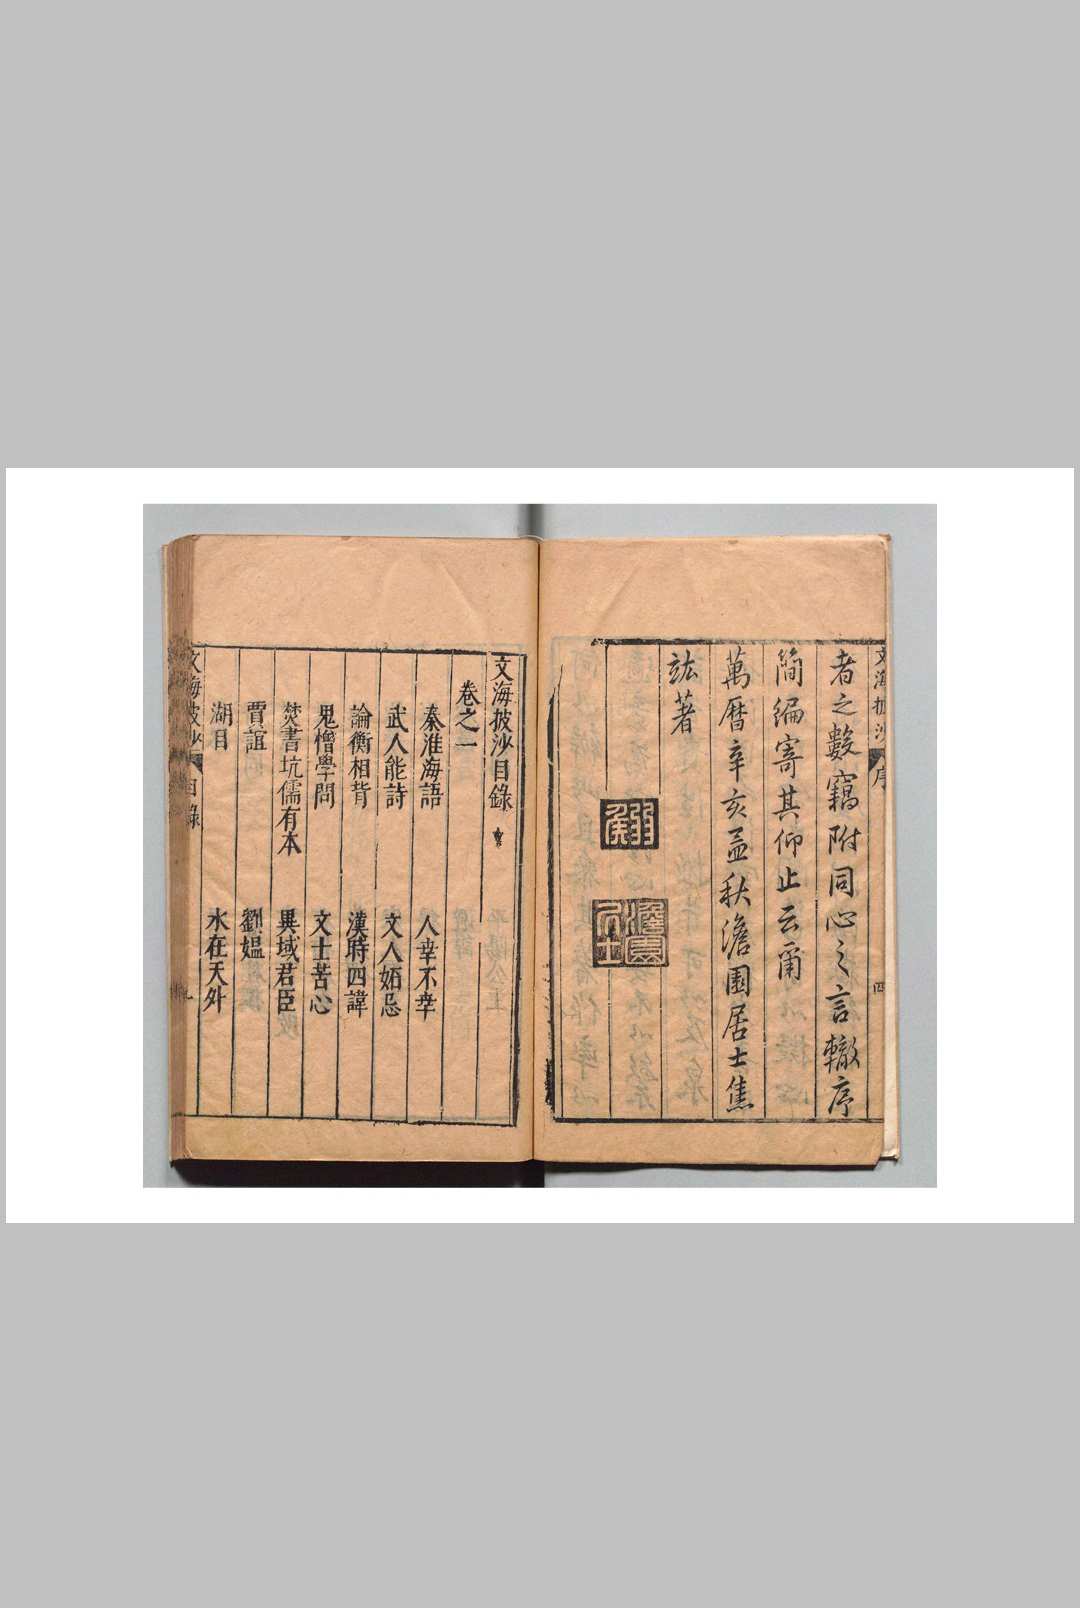 文海披沙 序 四
者之數竊附同心之言輙序
簡編寄其仰止云爾
萬曆辛亥孟秋澹園居士焦
竑著
弱侯
澹園居士
文海披沙目錄
卷之一
秦淮海語 人幸不幸
武人能詩 文人妬忌
論衡相背 漢時四諱
鬼憎學問 文士苦心
焚書坑儒有本 異域君臣
賈誼 劉媼
湖目 水在天外
文海披沙 目錄